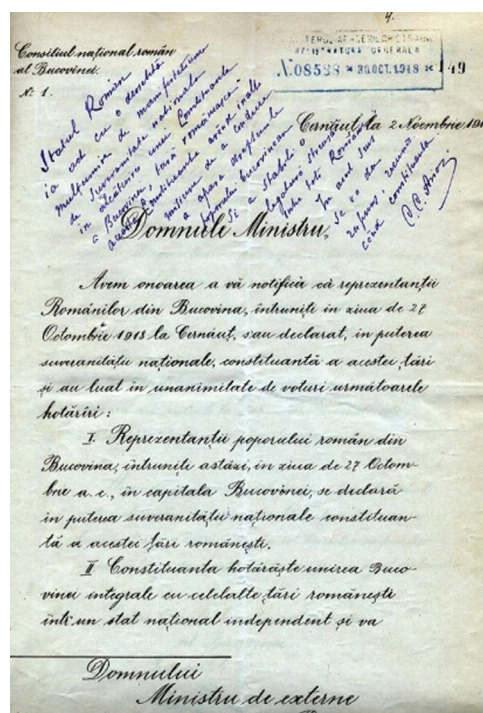 4.
REGISTRATURA GENERALA
No. 08588 * 30 OCT. 1918 * 149
Consiliul național român
al Bucovinei.
No 1.
Statul Român
ia act cu o deosebită
mulțumire de manifestațiunea
de suveranitate națională
în alcătuirea unei Constituante
a Bucovinei, țară românească.
această Constituantă având înalta
misiune de a conduce
a apăra drepturile
poporului bucovinean
Se a stabili o
legătură
între toți Românii
În acest sens
se va da
răspuns,
când constituanta
C. C. Arion
Cernăuț, la 2 Noembrie 191
Domnule Ministru,
Avem onoarea a vă notifică că reprezentanții
Românilor din Bucovina, întruniți in ziua de 27
Octombrie 1918 la Cernăuț, s'au declarat, in puterea
suveranității naționale, constituantă a acestei țări
și au luat in unanimitate de voturi următoarele
hotărîri:
I. Reprezentanții poporului român din
Bucovina, întruniți astăzi, in ziua de 27 Octom-
brie a. c., in capitala Bucovinei, se declară
in puterea suveranității naționale constituan-
tă a acestei țări românești.
II Constituanta hotărăște unirea Buco-
vinei integrale cu celelalte țări românești
într'un stat național independent și va
Domnului
Ministru de externe